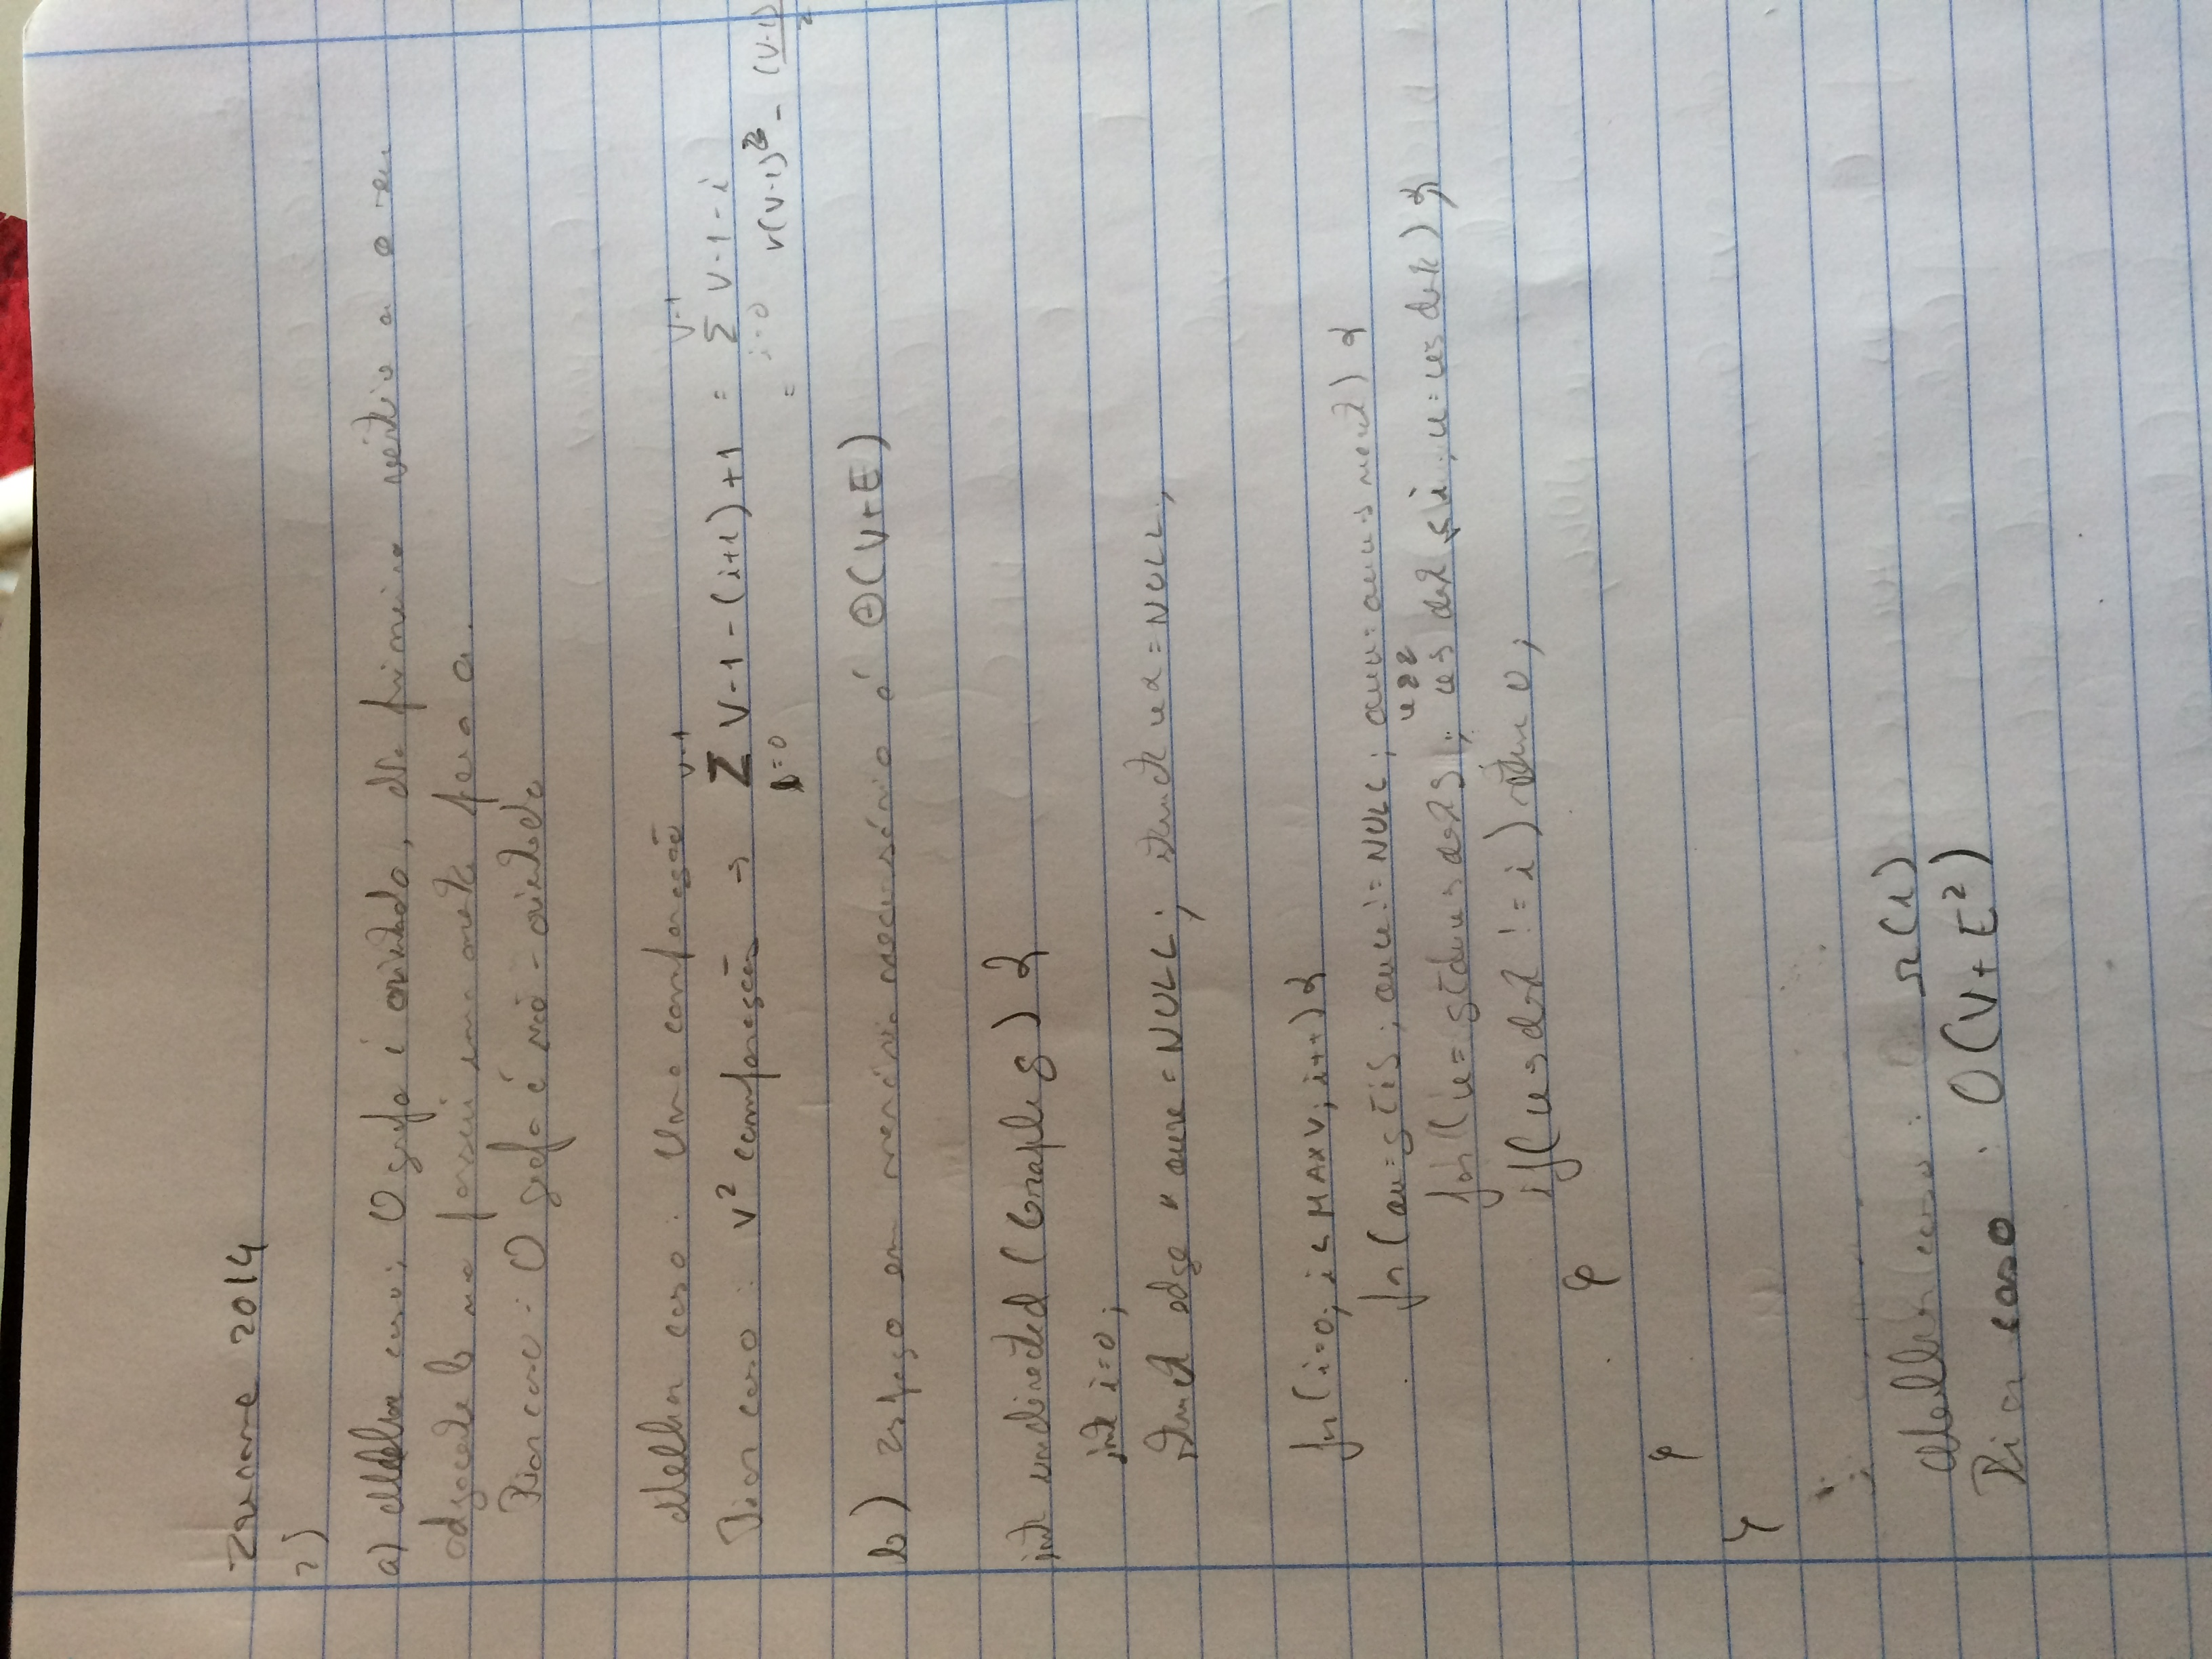 Exame 2014
2)
a) Melhor caso: O grafo é orientado, No primeiro vértice a o seu
adjacente b não possui uma aresta para a.
Pior caso: O grafo é não-orientado
Melhor caso: Uma comparação
Pior caso: V² comparações → V-1 Σ i=0 V-1-(i+1)+1 = V-1 Σ i=0 V-1-i
= V(V-1) - (V-1) 2
b) Espaço em memória necessário é Θ(V+E)
int undirected (Graph g) {
int i=0;
struct edge * aux = NULL; struct u = NULL;
for (i=0; i< MAXV; i++) {
for (aux=g[i]; aux != NULL; aux=aux->next) {
for (u= g[aux->dest]; u && u->dest != i; u=u->dest) {
if(u->dest != i) return 0;
}
}
}
Melhor caso: Ω(1)
Pior caso: O(V+E²)